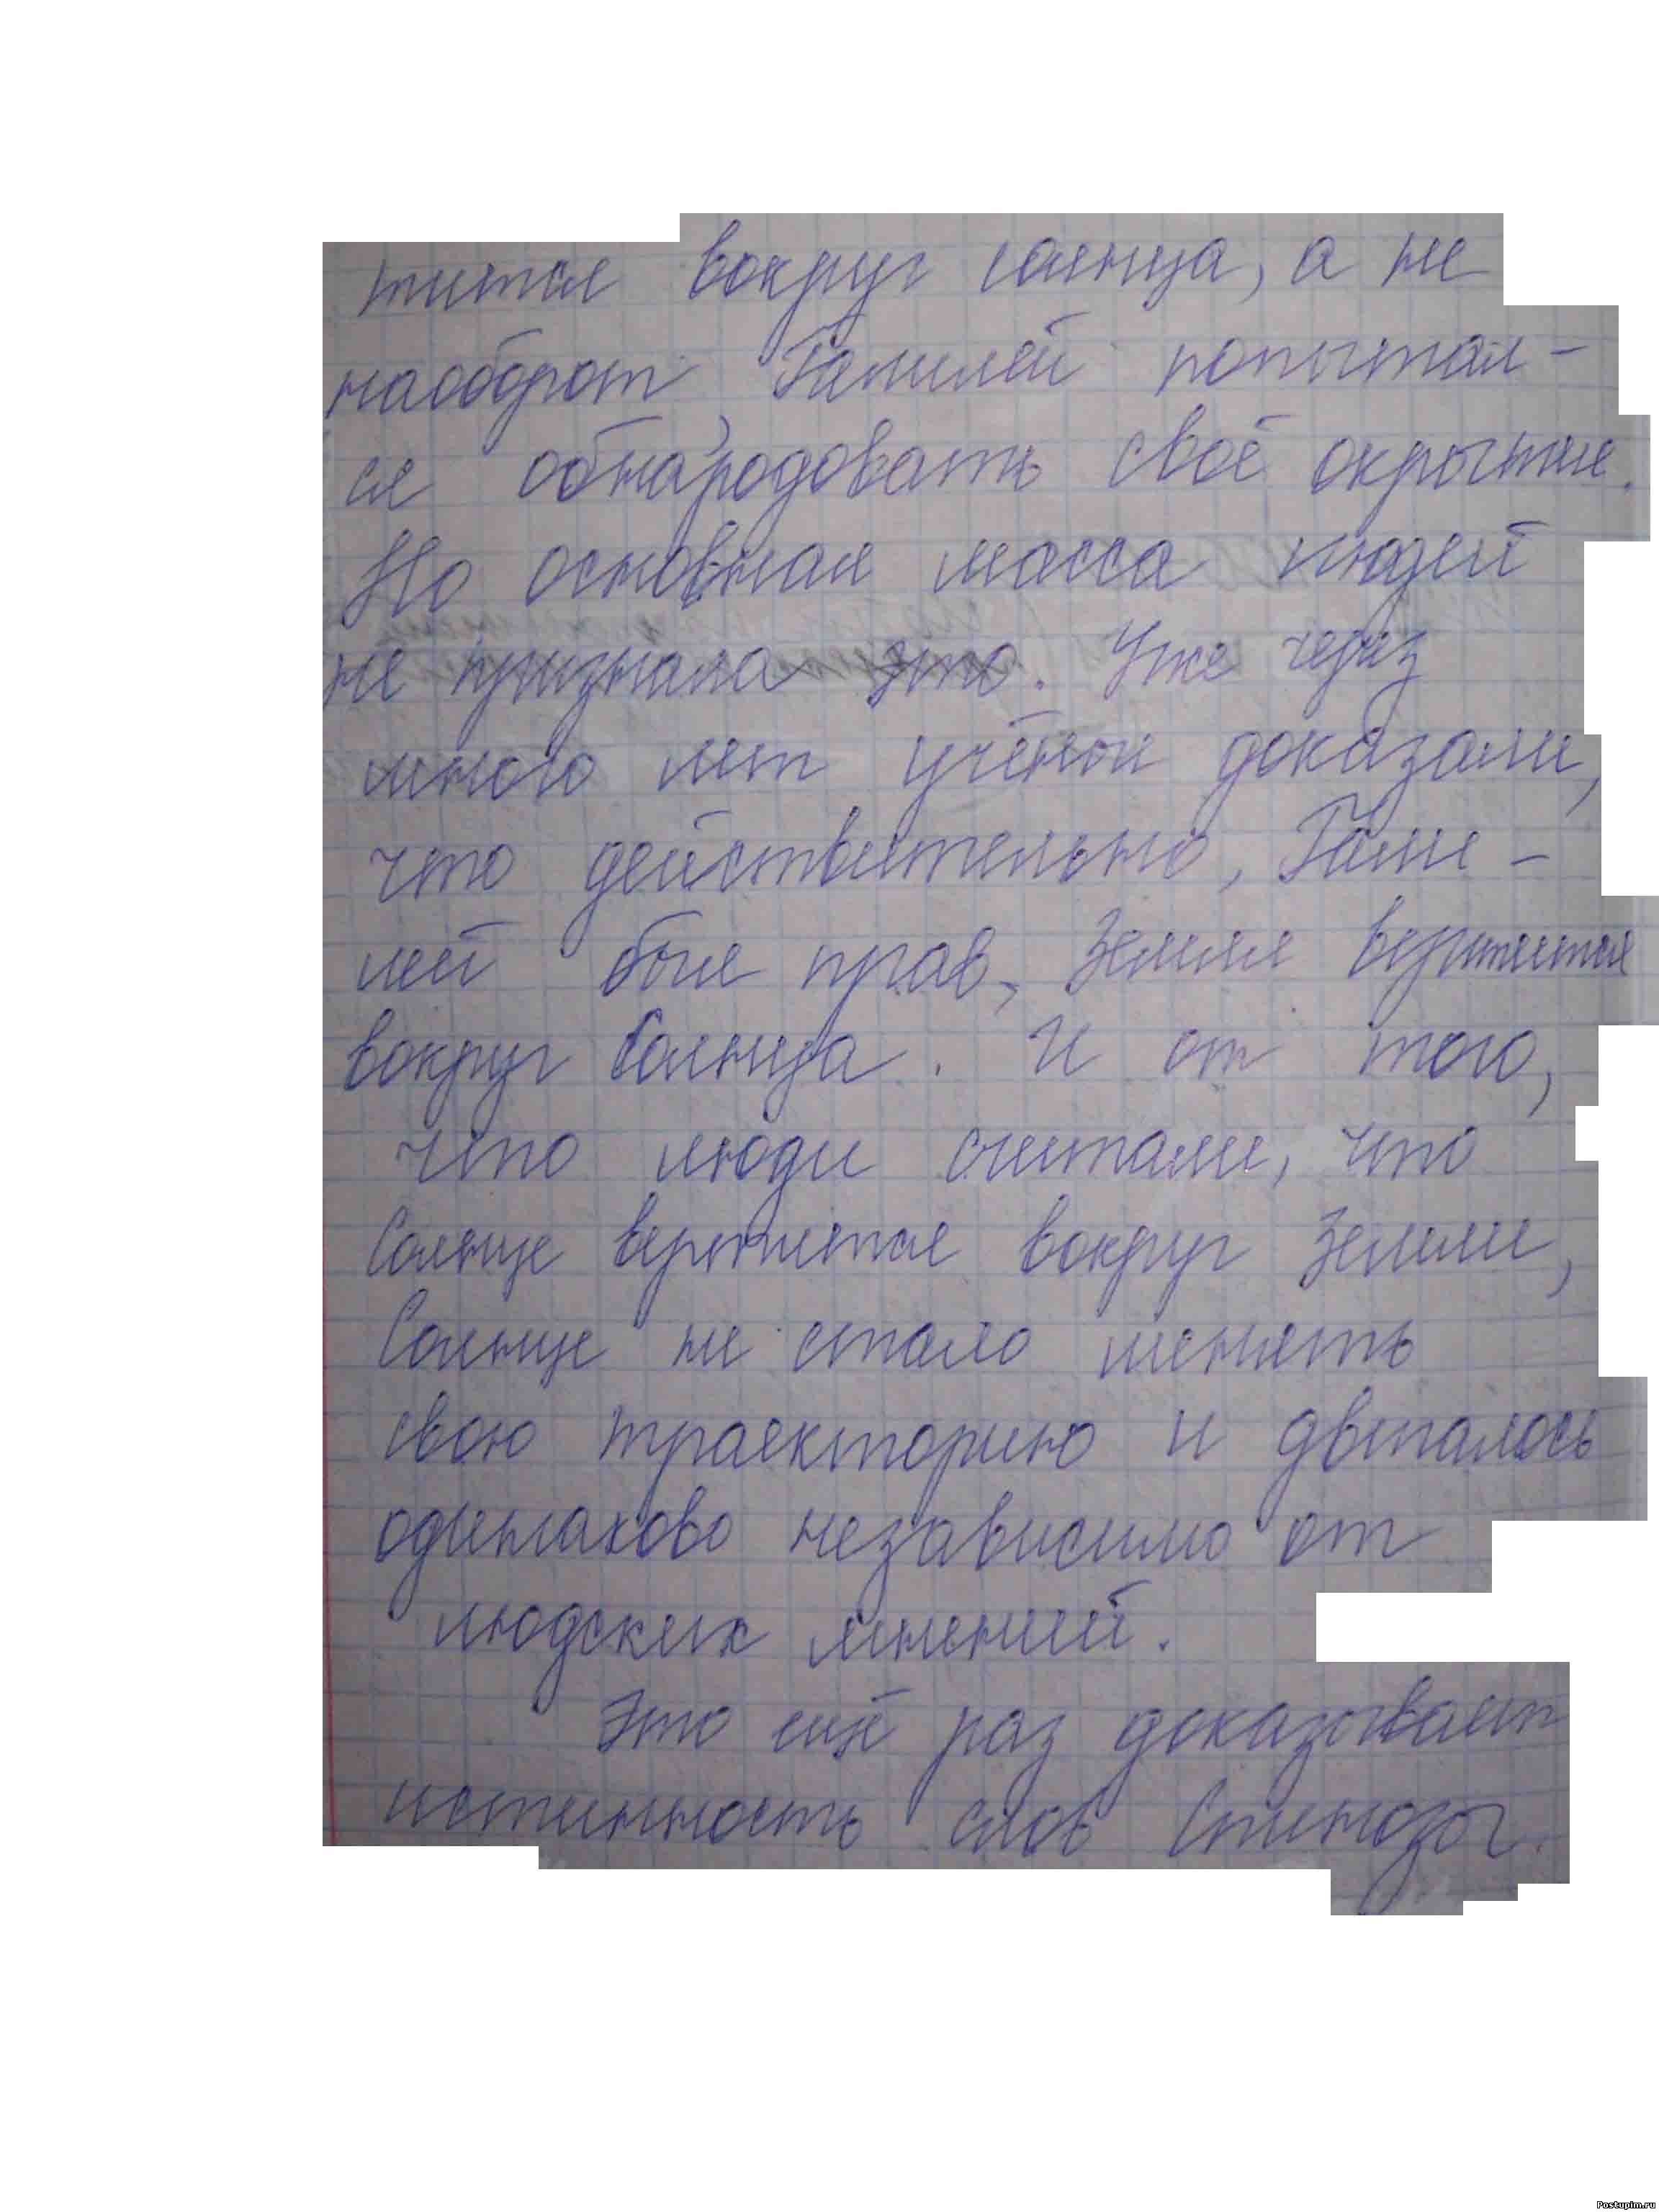 тится вокруг солнца, а не
наоборот Галилей попытал-
ся обнародовать своё окрытие.
Но основная масса людей
не признала это. Уже через
много лет учёные доказали,
что действительно, Гали-
лей был прав, Земля вертится
вокруг Солнца. И от того,
что люди считали, что
Солнце вертится вокруг Земли,
Солнце не стало менять
свою траекторию и двигалось
одинаково независимо от
людских мнений.
Это ещё раз доказывает
истинность слов Спинозы.
Postupim.ru